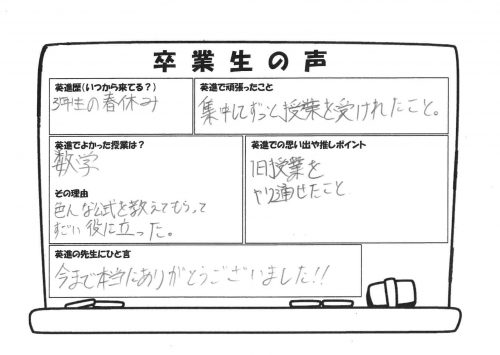 卒業生の声
英進歴(いつから来てる?)
3年生の春休み
英進で頑張ったこと
集中してずっと授業を受けれたこと。
英進でよかった授業は?
数学
その理由
色んな公式を教えてもらって
すごい役に立った。
英進での思い出や推しポイント
1日授業を
やり通せたこと
英進の先生にひと言
今まで本当にありがとうございました!!